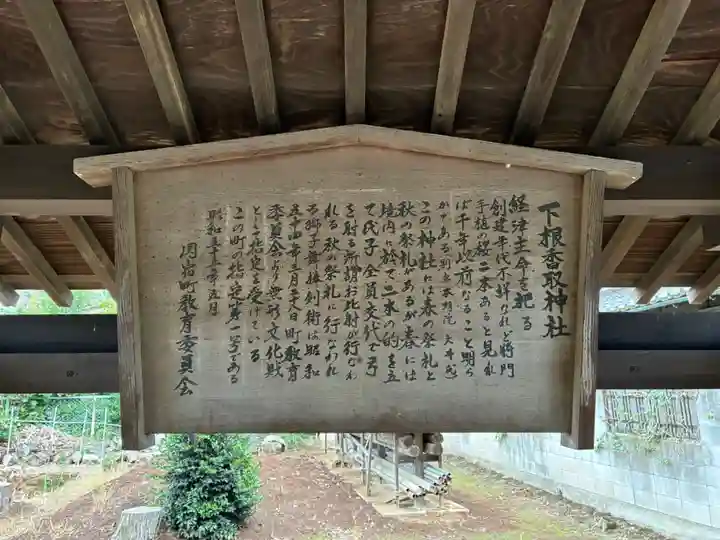 下根香取神社
経津主命を祀る
創建年代不詳なれど将門
手植の桜二本あると見れ
ば千年以前なること明ら
かである
この神社には春の祭礼と
秋の祭礼があるが春には
境内に於て二米の的を立
て氏子全員交代で弓
を射る所謂お比射が行なわ
れる秋の祭礼に行なわれ
る獅子舞棒剣術は昭和
五十四年三月二十八日町教育
委員会から無形文化財
として指定を受けている
この町の指定第一号である
昭和五十五年五月
教育委員会